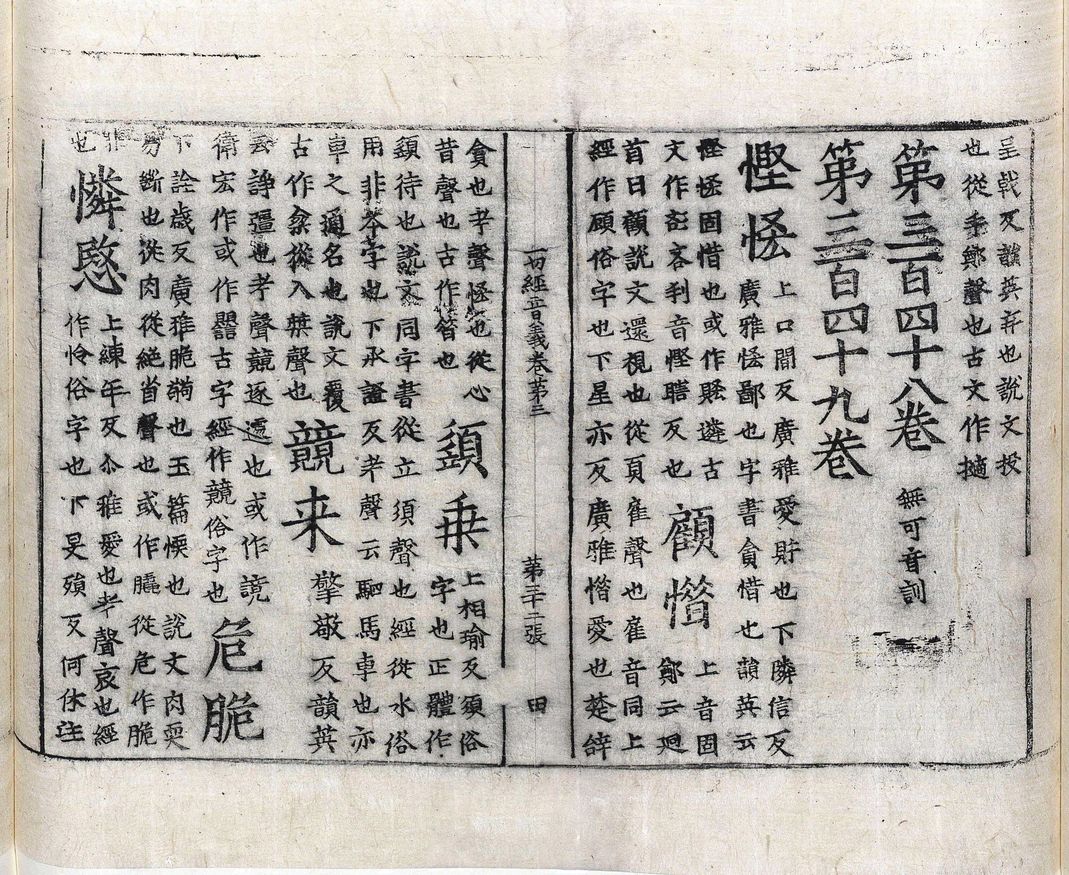 呈戟反韻英弃也說文投
也從手鄭聲也古文作擿
第三百四十八卷 無可音訓
第三百四十九卷
慳悋 上口間反廣雅愛貯也下隣信反
廣雅悋鄙也字書貪惜也韻英云
慳悋固惜也或作遴古
文作吝利音慳反也 顧惜 上音固
鄭云廻
首曰顧說文還視也從頁雇聲也雇音同上
經作顧俗字也下星亦反廣雅惜愛也楚辭
一切經音義卷第三 第三十二張 田
貪也考聲悋也從心
昔聲也古作也 須乗 上相瑜反須俗
字也正體作
䇓待也說文同字書從立須聲也經從水俗
用非本字也下承證反考聲云駟馬車也亦
車之通名也說文覆
古作椉從入桀聲也 競来 擎敬反韻英
云諍彊也考聲競逐遽也或作誩
衛宏作或作譶古字經作競俗字也 危脆
下詮歲反廣雅脆也玉篇愞也說文肉耎
易斷也從肉從絕省聲也或作膬從危作脆
非
也 憐愍 上練年反尒雅愛也考聲哀也經
作怜俗字也下旻殞反何休注